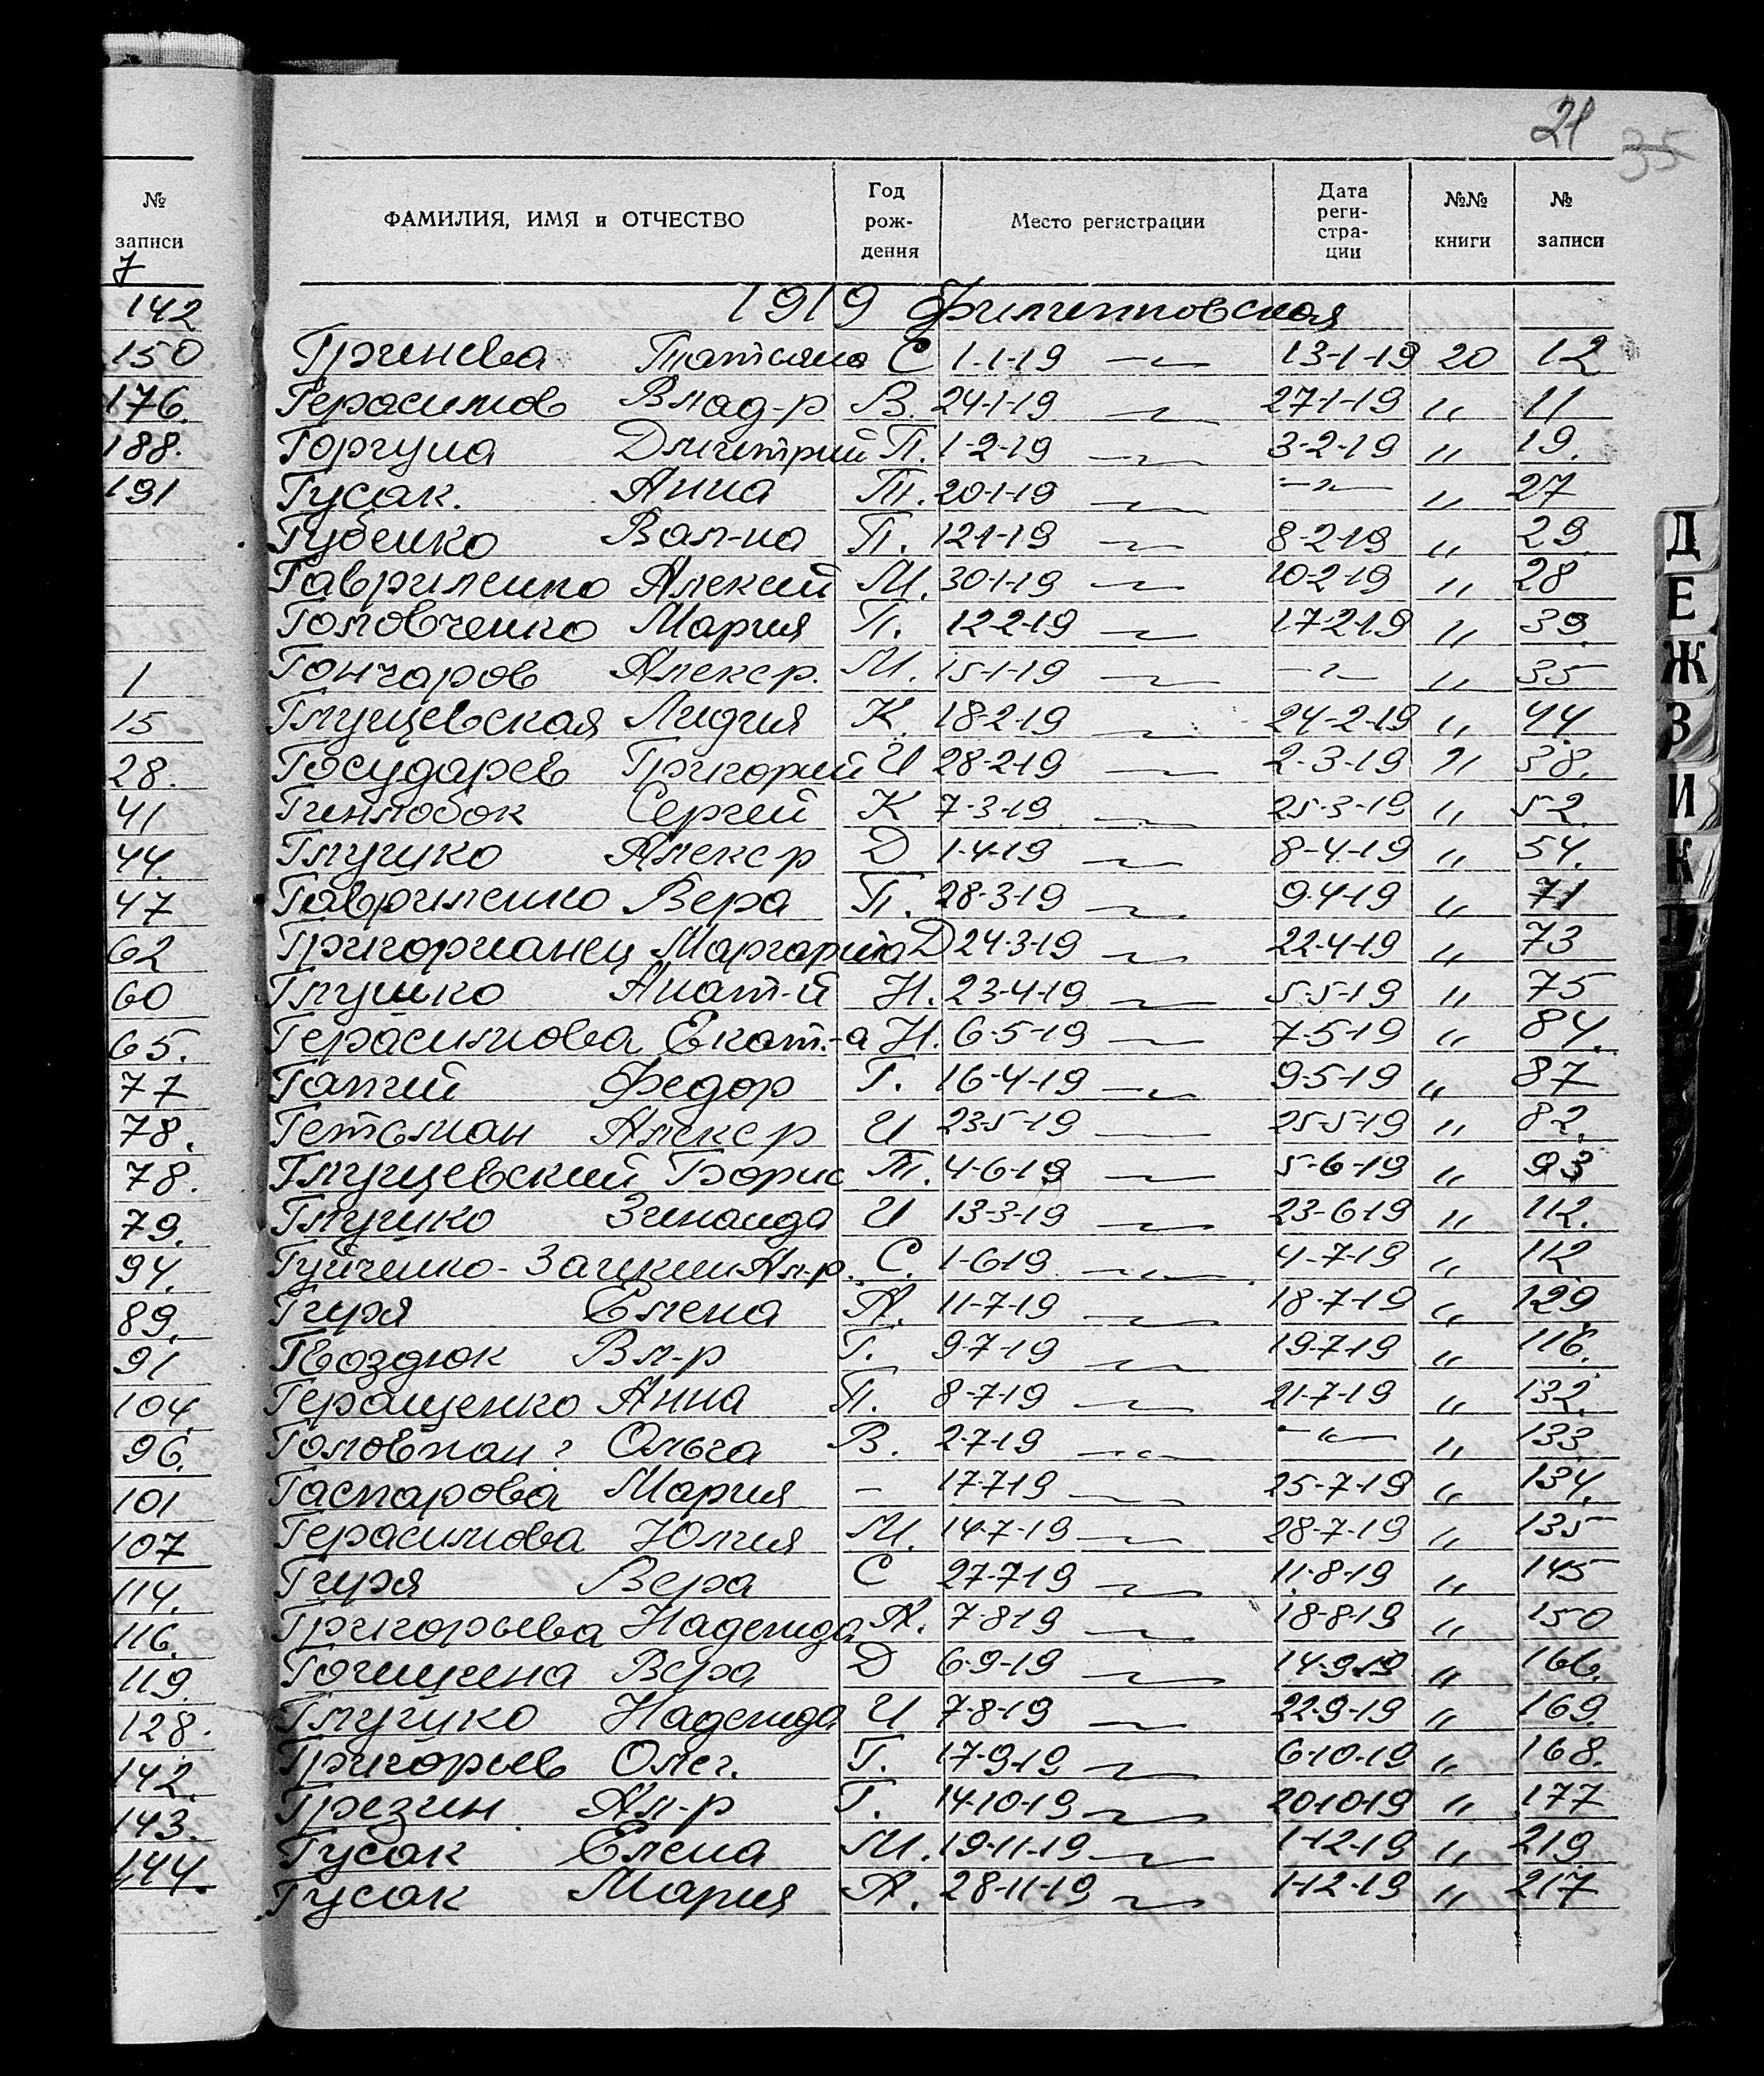 21
35
№ записи
7
142
150
176.
188.
191
1
15
28.
41
44.
47
62
60
65.
77
78.
78.
79.
94.
89.
91
104.
96.
101
107
114.
116.
119.
128.
142.
143.
144.
ФАМИЛИЯ, ИМЯ и ОТЧЕСТВО Год рож- дения Место регистрации Дата реги- стра- ции №№ книги № записи
1919 Филипповская
Гринева Татьяна С 1-1-19 —〃— 13-1-19 20 12
Герасимов Влад-р В. 24-1-19 —〃— 27-1-19 〃 11
Горгула Дмитрий П. 1-2-19 —〃— 3-2-19 〃 19.
Гусак. Анна Т. 20-1-19 —〃— —〃— 〃 27
Губенко Вал-на П. 12-1-19 —〃— 8-2-19 〃 29.
Гавриленко Алексей М. 30-1-19 —〃— 10-2-19 〃 28
Головченко Мария П. 12-2-19 —〃— 17-2-19 〃 39.
Гончаров Алекс р. М. 15-1-19 —〃— —〃— 〃 35
Глущевская Лидия К. 18-2-19 —〃— 24-2-19 〃 44.
Государев Григорий И 28-2-19 —〃— 2-3-19 〃 38.
Гнилобок Сергей К 7-3-19 —〃— 25-3-19 〃 52.
Глушко Алекс р Д 1-4-19 —〃— 8-4-19 〃 54.
Гавриленко Вера П. 28-3-19 —〃— 9-4-19 〃 71
Григорианец Маргарита Д 24-3-19 —〃— 22-4-19 〃 73
Глушко Анат-й Н. 23-4-19 —〃— 5-5-19 〃 75
Герасимова Екат.-а Н. 6-5-19 —〃— 7-5-19 〃 84.
Гапий Федор Г. 16-4-19 —〃— 9-5-19 〃 87
Гетьман Алекс р И 23-5-19 —〃— 25-5-19 〃 82.
Глущевский Борис Т. 4-6-19 —〃— 5-6-19 〃 93
Глушко Зинаида И 13-3-19 —〃— 23-6-19 〃 112.
Гуйченко- Ал-р. С. 1-6-19 —〃— 4-7-19 〃 112
Гиря Елена А. 11-7-19 —〃— 18-7-19 〃 129
Гвоздюк Вл-р Г. 9-7-19 —〃— 19-7-19 〃 116.
Геращенко Анна П. 8-7-19 —〃— 21-7-19 〃 132.
Головпан ? Ольга В. 2-7-19 —〃— —〃— 〃 133.
Гаспарова Мария – 17-7-19 —〃— 25-7-19 〃 134.
Герасимова Юлия М. 14-7-19 —〃— 28-7-19 〃 135
Гиря Вера С 27-7-19 —〃— 11-8-19 〃 145
Григорьева Надежда А. 7-8-19 —〃— 18-8-19 〃 150
Вера Д 6-9-19 —〃— 14-9-19 〃 166.
Глушко Надежда И 7-8-19 —〃— 22-9-19 〃 169.
Григорьев Олег. Г. 17-9-19 —〃— 6-10-19 〃 168.
Грезин Ал-р Г. 14-10-19 —〃— 20-10-19 〃 177
Гусак Елена М. 19-11-19 —〃— 1-12-19 〃 219.
Гусак Мария А. 28-11-19 —〃— 1-12-19 〃 217
Д
Е
Ж
З
И
К
Л